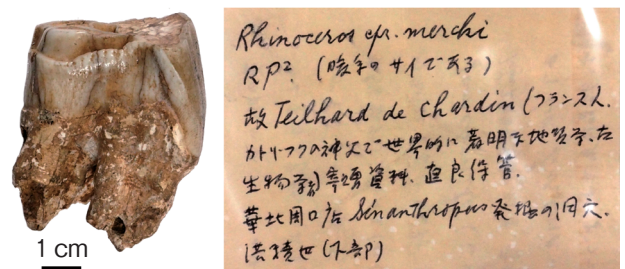 Rhinoceros cfr. merchi
RP². (暖系のサイである)
故 Teilhard de Chardin (フランス人.
カトリックの神父で世界的に著明な地質学、古
生物学)寄贈資料. 直良保管.
華北周口店 Sinanthropus 発掘の洞穴.
洪積世(下部)
1 cm